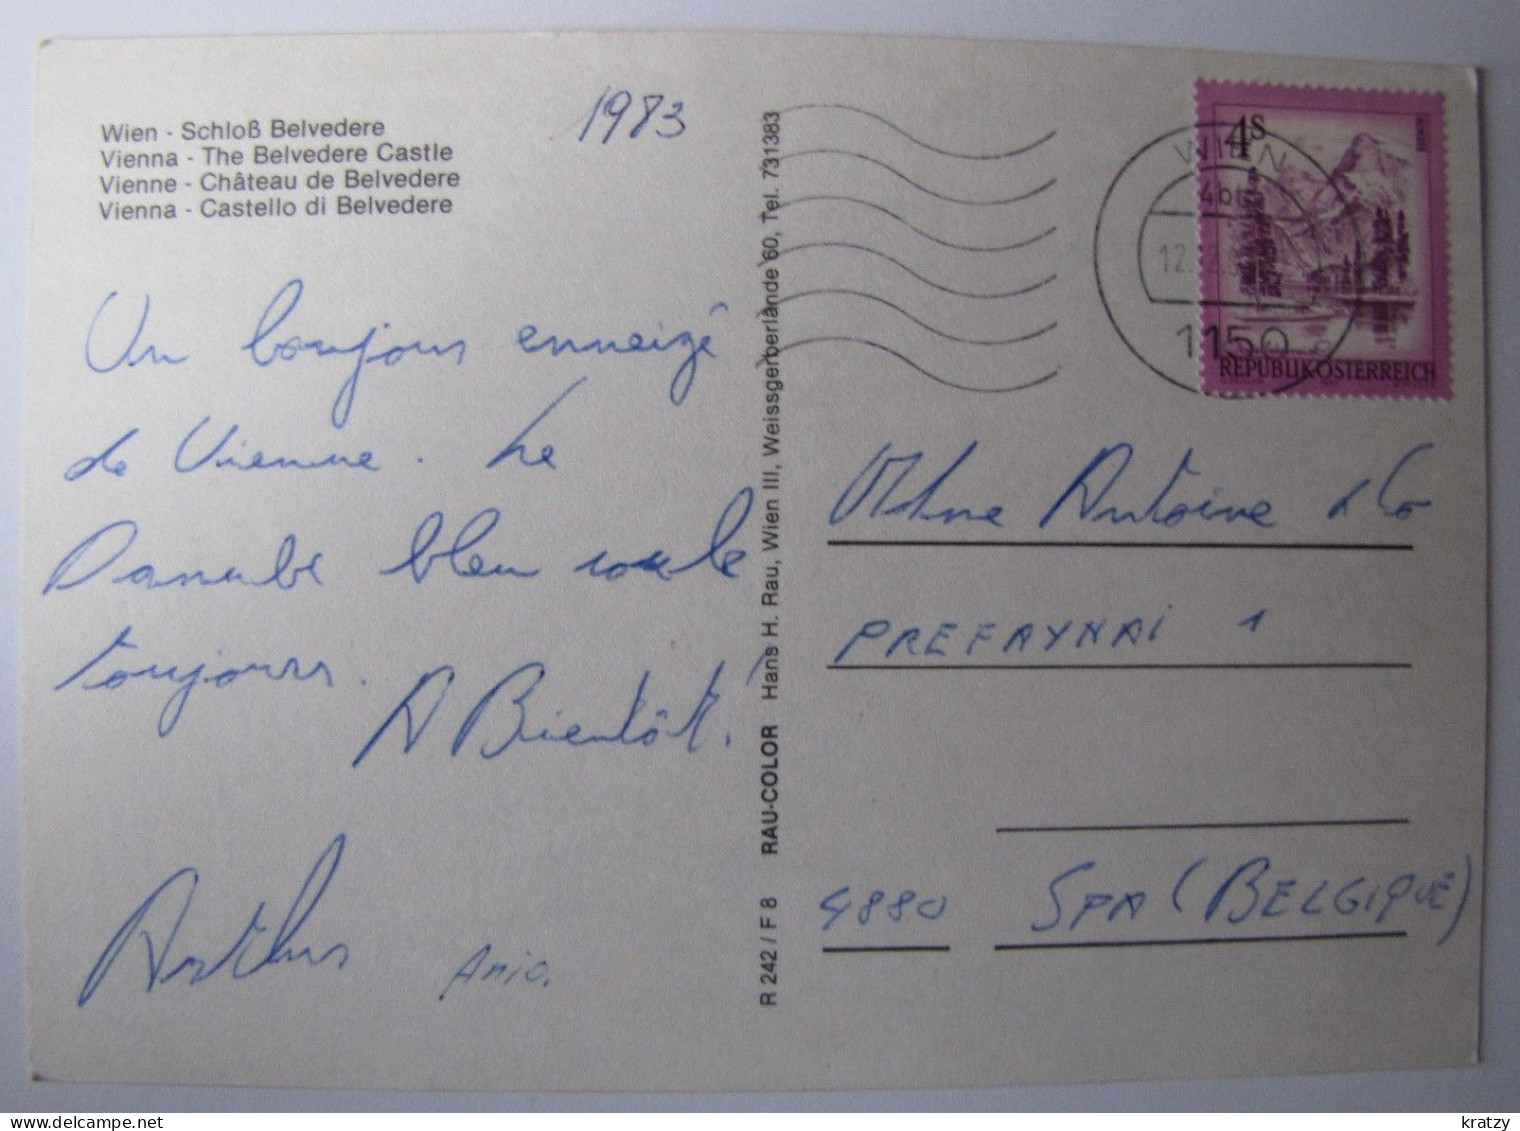 Wien - Schloß Belvedere
Vienna - The Belvedere Castle
Vienne - Château de Belvedere
Vienna - Castello di Belvedere
1983
Un bonjour enneigé
de Vienne. Le
Danube bleu roule
toujours.
A Bientôt!
Arthur Anic.
R 242 / F 8 RAU-COLOR Hans H. Rau, Wien III, Weissgerberlände 60, Tel. 731383
WIEN
12.
1150
4S
REPUBLIK ÖSTERREICH
Mme Antoine & Co
PREFAYHAI 1
4880 SPA (BELGIQUE)
kratzy